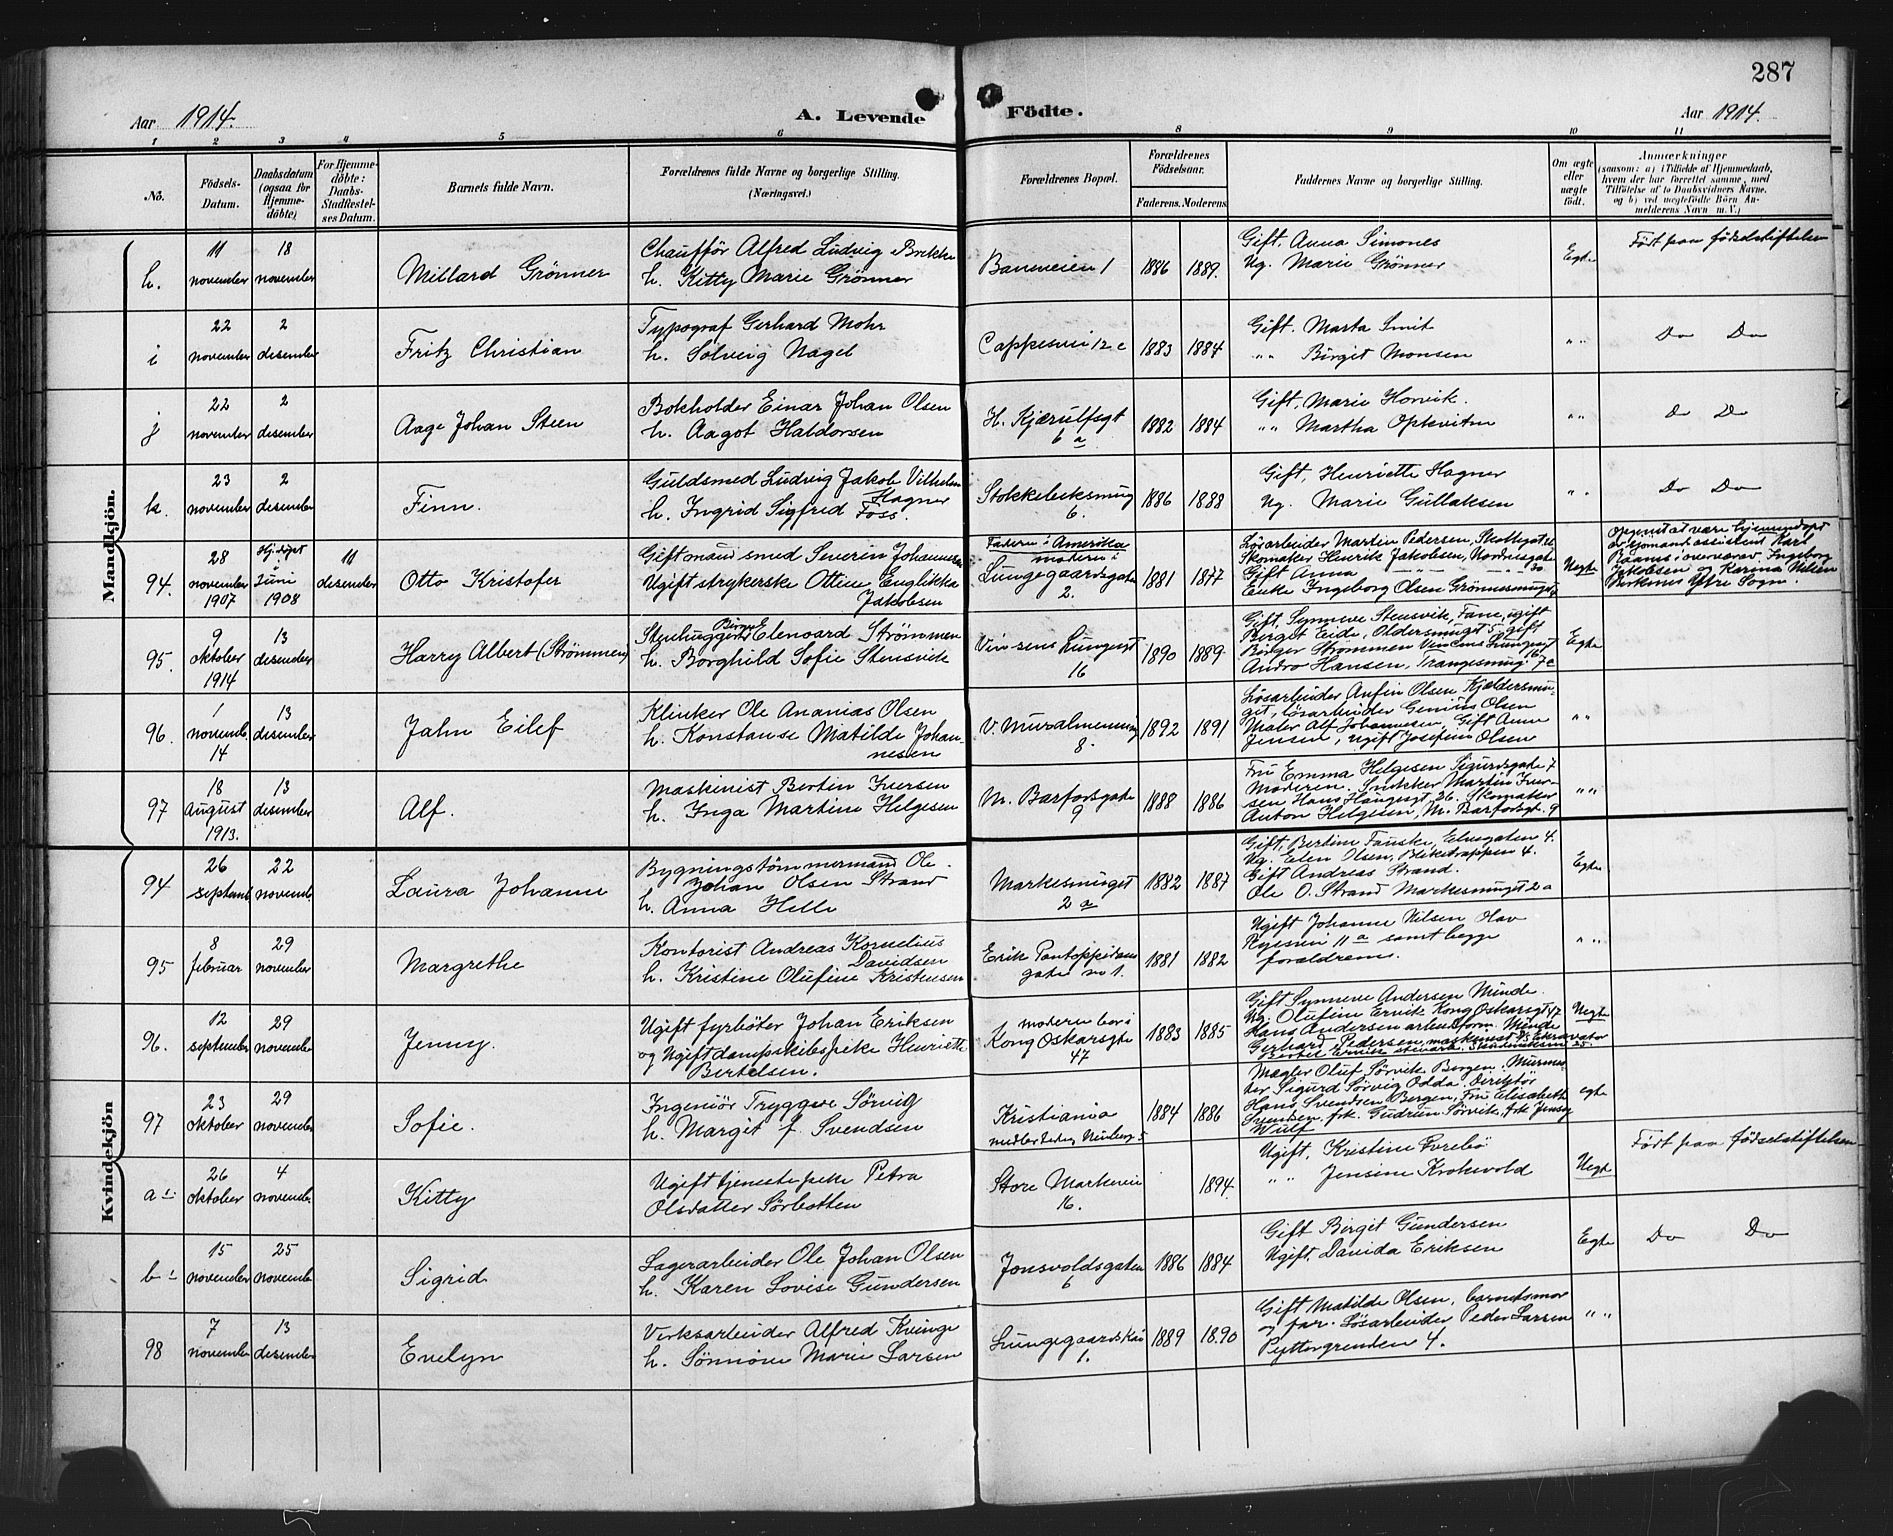 287
Aar 1914.
A. Levende
Födte.
Aar 1914.
1 2 3 4 5 6 8 9 10 11
No.
Födsels-Datum.
Daabsdatum (ogsaa for Hjemmedöbte)
For Hjemmedöbte: Daabs-Stadfæstelses Datum.
Barnets fulde Navn.
Forældrenes fulde Navne og borgerlige Stilling.
(Næringsvei.)
Forældrenes Bopæl.
Forældrenes Födselsaar.
Faderens. Moderens.
Faddernes Navne og borgerlige Stilling.
Om ægte eller uægte født.
Anmærkninger
(saasom: a) i Tilfælde af Hjemmedaab,
hvem der har forrettet samme, med
Tilföielse af to Daabsvidners Navne.
og b) ved uægtefödte Börn An-
melderens Navn m. V.)
Mandkjön.
h. 11 november 18 november Millard Grönner
Chaufför Alfred Ludvig
h. Kitty Marie Grönner
1886 1889.
Gift. Anna Simones
Ug. Marie Grönner
Egte
Födt paa födselstiftelsen
i 22 november 2 desember Fritz Christian
Typograf Gerhard Mohr
h. Solveig Nagel
Cappesvei 12 c 1883 1884
Gift. Marta Smit
" " Birgit Monsen
" "
Do Do
j 22 november 2 desember Aage Johan Steen
Bokholder Einar Johan Olsen
h. Aagot Haldorsen
H. Kjærulfsgt 6 a 1882 1884
Gift, Marie Horvik.
" " Martha
" "
Do Do
k. 23 november 2 desember Finn.
Guldsmed Ludvig Jakob Vilhelm Hagner
h. Ingrid Sigfred Foss.
6. 1886 1888
Gift, Henriette Hagner
Ug. Marie Gullaksen
" "
Do Do
94. 28 november 1907 Hjdöpt Juni 1908 11 desember Otto Kristofer
Gift mand smed Severin Johannesen
Ugift strykerske Ottine Englikka Jakobsen
Faderen i Amerika
moderen i
Lungegaardsgate 2. 1881 1877
Lösarbeider Martin Pedersen,
Skomaker Henrik Jakobsen, Nordnesgate 30
Gift Anna
Enke Ingeborg Olsen
Uegte
Opgenit at være hjemmedöpt
av Karl
i overvær av Ingeborg
Jakobsen og Karina Nilsen
Ytre Sogn.
95. 9 oktober 1914 13 desember Harry Albert (Strömmen)
Stenhugger Birger Elenoard Strömmen
h. Borghild Sofie Stensvik
16 1890 1889.
Gift. Synneve Stensvik, Fane, ugift
Berget Eide, Oldersmuget 5, gift
Birger Strömmen
Andro Hansen,
Egte
96. 1 novemb. 14 13 desember Jahn Eilef
Klinker Ole Ananias Olsen
h. Konstanse Matilde Johan-
nesen
V. Muralmenning 8. 1892 1891
Lösarbeider Anfin Olsen Kjeldersmu-
get, lösarbeider Olsen
Maler Alf Johannesen, Gift Anne
Jensen, ugift Josefine Olsen
" "
97 18 August 1913. 13 desember Alf.
Maskinist Bertin Iversen
h. Inga Martine Helgesen
M. Barfotsgate 9 1888 1886
Fru Emma Helgesen Sigurdsgate 7
Moderen. Snekker Martin Iver-
sen Hans Haugesgt 26. Skomaker
Anton Helgesen, M. Barfotsgt. 9
" "
Kvindekjön
94 26 septemb 22 novemb. Laura Johanne
Bygningstömmermand Ole
Johan Olsen Strand
h. Anna Helle
Markesmuget 2 a 1882 1887
Gift. Bertine Fauske, 4.
Ug. Elen Olsen, Bliketrappen 4.
Gift Andreas Strand.
Ole O. Strand Markesmuget 2 a
Egte
95 8 februar 29 november Margrethe
Kontorist Andreas Kornelius
Davidsen
h. Kristine Olufine Kristensen
Erik Pontoppidans
gate no 1. 1881 1882
Ugift Johanne Nilsen Hav
11 a samt begge
forældrene.
" "
96. 12 september 29 novembr Jenny.
Ugift fyrböter Johan Eriksen
og Ugift dampskibspike Henriette
Bertelsen.
moderen bor i
Kong Oskarsgte
47 1883 1885
Gift Synneve Andersen Minde.
Ug. Olufine Ervik Kong Oskarsgt 47
Hans Andersen Minde
Gerhard Pedersen, maskinist
Uegte
97 23 oktober 29 novemb. Sofie.
Ingeniör Tryggve Sörvig
h. Margit f. Svendsen
Kristiania 1884 1886
Mægler Oluf Sörvik Bergen.
Sigurd Sörvig Odda. Direktör
Hans Svendsen Bergen, Fru Elisabeth
Svendsen, frk. Gudrun Sörvik, frk Jenny
Wulf
egte
a 26 oktober 4 novemb. Kitty
Ugift tjenestepike Petra
Olsdatter Sörbotten
Store Markevei
16. 1894
Ugift, Kristine
" " Jensine Krokvold
Uegt
Födt paa födselstiftelsen
b 15 november 25 novemb Sigrid
Lagerarbeider Ole Johan Olsen
h. Karen Lovise Gundersen
Jonsvoldsgaten
6 1886 1884
Gift Birgit Gundersen
Ugift, Davida Eriksen
Egte
Do Do
98 7 november 13 desember Evelyn
Verksarbeider Alfred Kvinge
h. Sönnöve Marie Larsen
1. 1889 1890
Gift Matilde Olsen, barnetsmor
og far. Lösarbeider Peder Larsen
Pyttergrenden 4.
" "